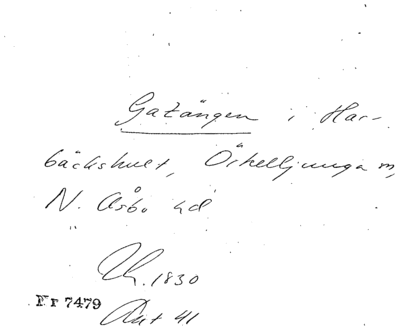 Gatängen i Har-
bäckshult, Örkelljunga m,
N. Åsbo hd
Lh. 1830
Nr 7479
Akt 41